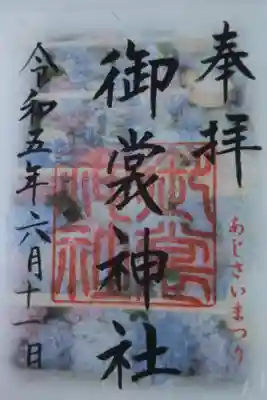 奉拝
あじさいまつり
御裳神社
令和五年六月十一日